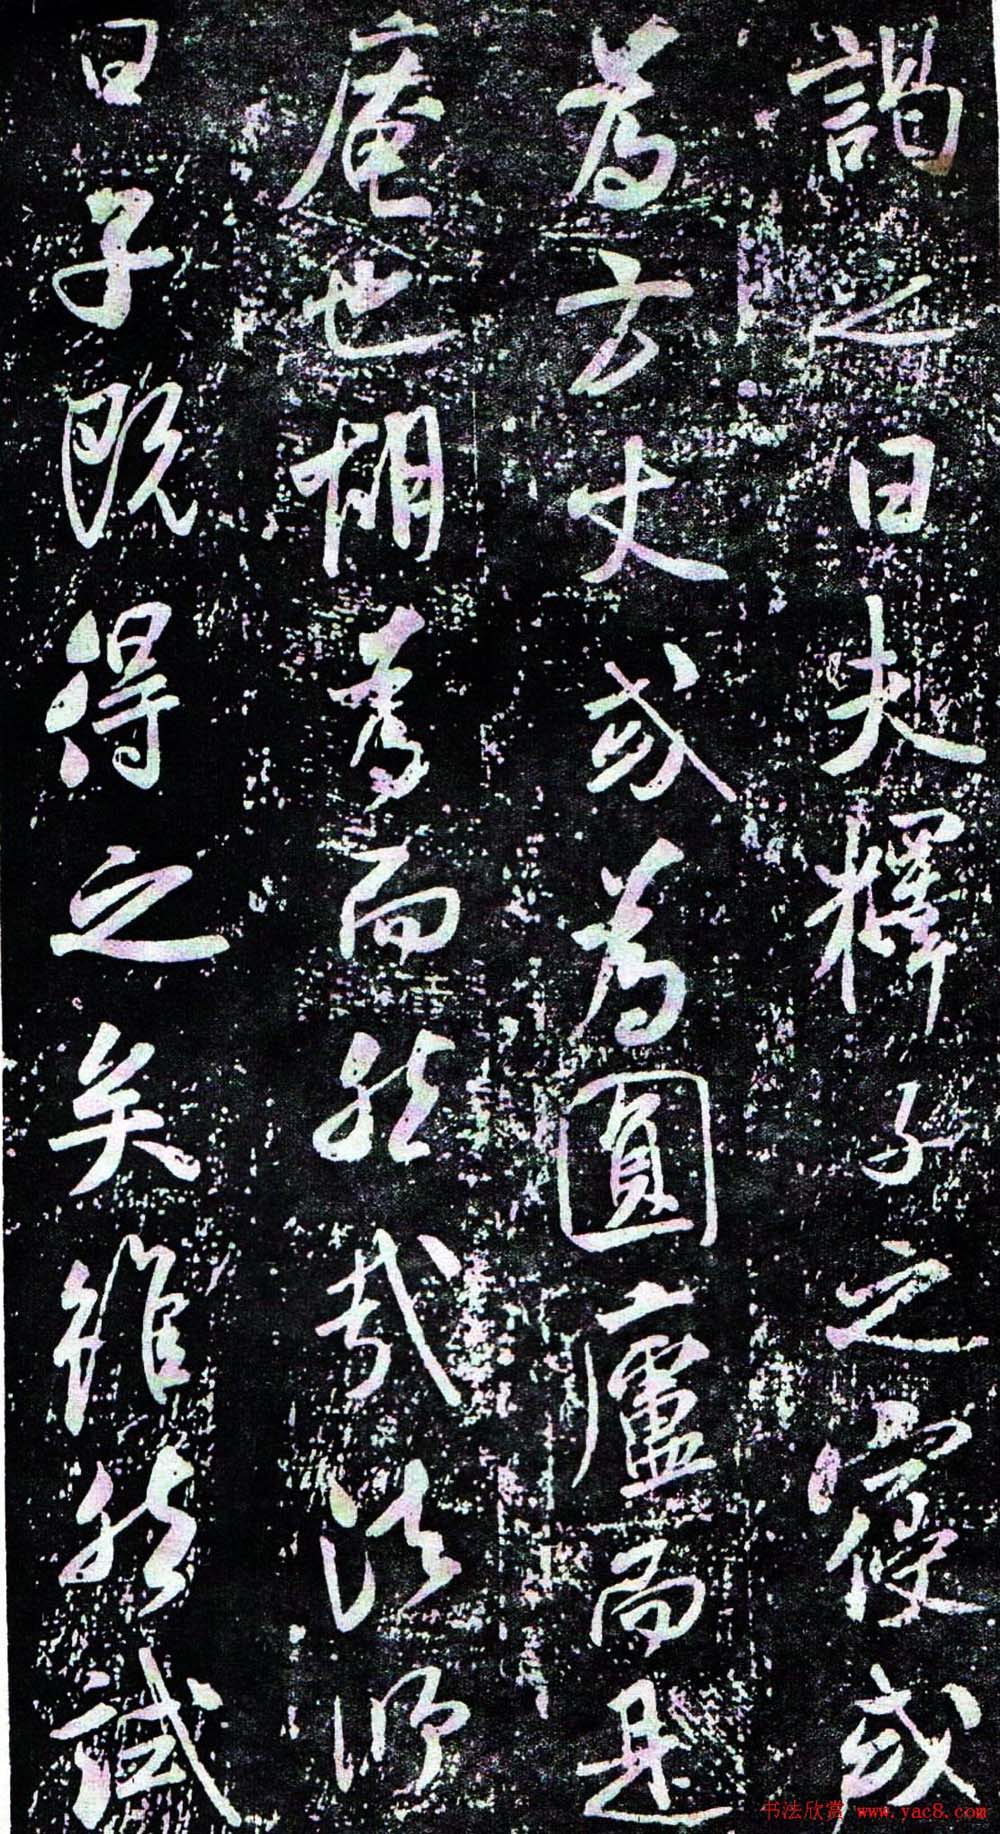 謁之曰夫釋子之寢或
為方丈或為圓廬而是
庵也胡為而然哉法師
曰子既得之矣雖然試
书法欣赏 www.yac8.com